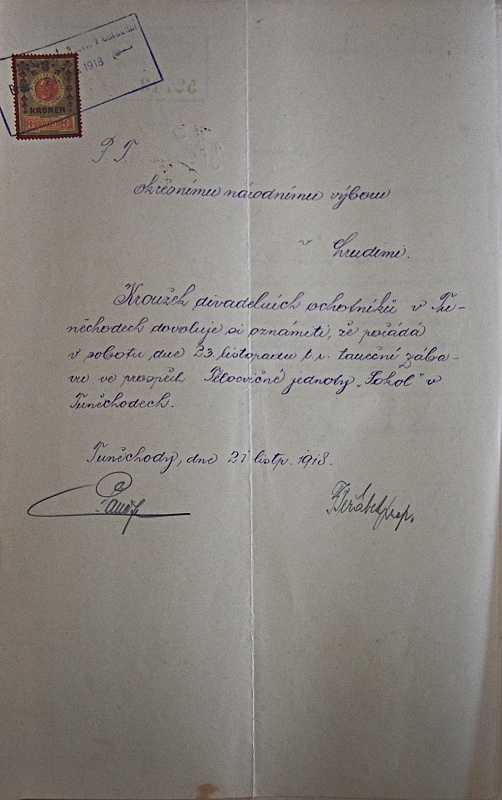 1918
KRONEN
P T
Okresnímu národnímu výboru
v
Chrudimi.
Kroužek divadelních ochotníků v Tu-
něchodech dovoluje si oznámiti, že pořádá
v sobotu dne 23. listopadu t. r. taneční zába-
vu ve prospěch Tělocvičné jednoty „Sokol" v
Tuněchodech.
Tuněchody, dne 21 listp. 1918.